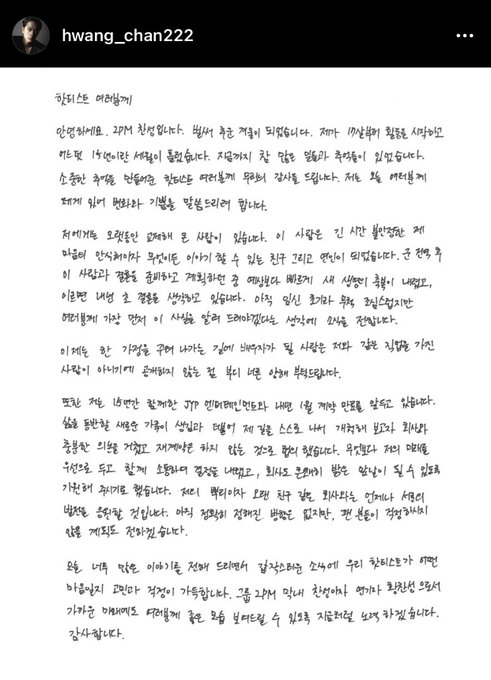 hwang_chan222
핫티스트 여러분께
안녕하세요. 2PM 찬성입니다. 벌써 추운 겨울이 되었습니다. 제가 17살부터 활동을 시작하고
어느덧 15년이란 세월이 흘렀습니다. 지금까지 참 많은 일들과 추억들이 있었습니다.
소중한 추억을 만들어준 핫티스트 여러분께 무한의 감사를 드립니다. 저는 오늘 여러분께
제게 있어 변화와 기쁨을 말씀드리려 합니다.
저에게는 오랫동안 교제해 온 사람이 있습니다. 이 사람은 긴 시간 불안정한 제
마음의 안식처이자 무엇이든 이야기 할 수 있는 친구 그리고 연인이 되었습니다. 군 전역 후
이 사람과 결혼을 준비하고 계획하던 중 예상보다 빠르게 새 생명의 축복이 내렸고,
이르면 내년 초 결혼을 생각하고 있습니다. 아직 임신 초기라 무척 조심스럽지만
여러분께 가장 먼저 이 사실을 알려 드려야겠다는 생각에 소식을 전합니다.
이제는 한 가정을 꾸려 나가는 길에 배우자가 될 사람은 저와 같은 직업을 가진
사람이 아니기에 공개하지 않는 점 부디 너른 양해 부탁드립니다.
또한 저는 15년간 함께한 JYP 엔터테인먼트와 내년 1월 계약 만료를 앞두고 있습니다.
삶을 동반할 새로운 가족이 생김과 더불어 제 길을 스스로 나서 개척해 보고자 회사와
충분한 의논을 거쳤고 재계약은 하지 않는 것으로 협의 했습니다. 무엇보다 저의 미래를
우선으로 두고 함께 소통하며 결정을 내렸고, 회사도 은혜히 밝은 앞날이 될 수 있도록
기원해 주시기로 했습니다. 저의 뿌리이자 오랜 친구 같은 회사와는 언제나 서로의
발전을 응원할 것입니다. 아직 정확히 정해진 방향은 없지만, 팬 분들이 걱정하시지
않을 계획도 전하겠습니다.
오늘 너무 많은 이야기를 전해 드리면서 갑작스러운 소식에 우리 핫티스트가 어떤
마음일지 고민과 걱정이 가득합니다. 그룹 2PM 막내 찬성이자 연기자 황찬성으로서
가까운 미래에도 여러분께 좋은 모습 보여드릴 수 있도록 지금처럼 노력 하겠습니다.
감사합니다.